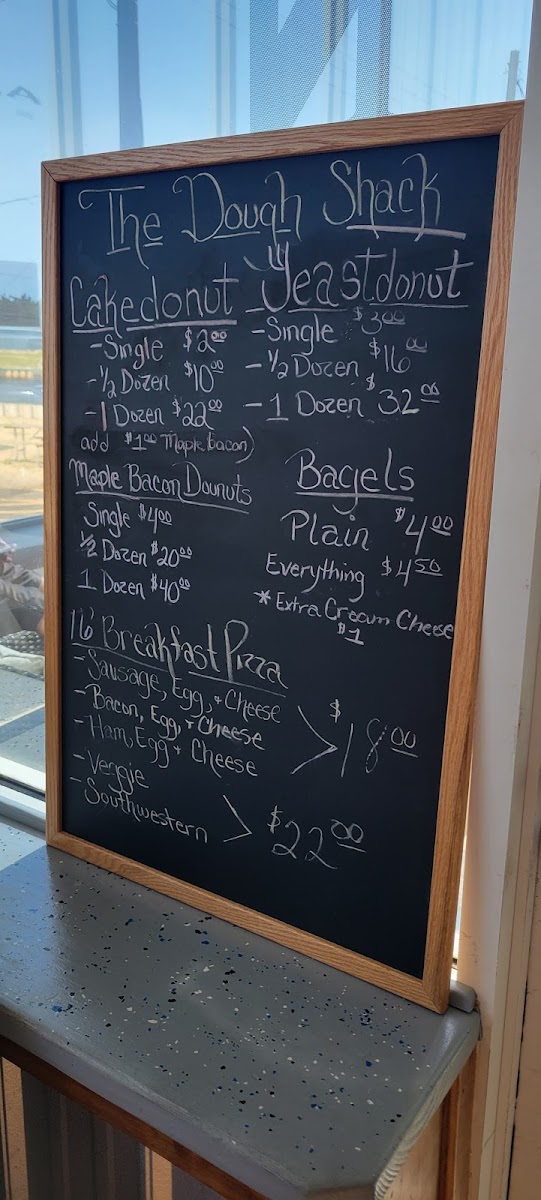 The Dough Shack
Cakedonut
-Single $2.00
-1/2 Dozen $10.00
-1 Dozen $22.00
add $1.00 Maple Bacon)
Yeastdonut
-Single $3.00
-1/2 Dozen $16.00
-1 Dozen $32.00
Maple Bacon Dounuts
Single $4.00
1/2 Dozen $20.00
1 Dozen $40.00
Bagels
Plain $4.00
Everything $4.50
*Extra Cream Cheese
$1
16' Breakfast Pizza
-Sausage, Egg, + Cheese
-Bacon, Egg, + Cheese
-Ham, Egg + Cheese
> $18.00
-Veggie
-Southwestern
> $22.00